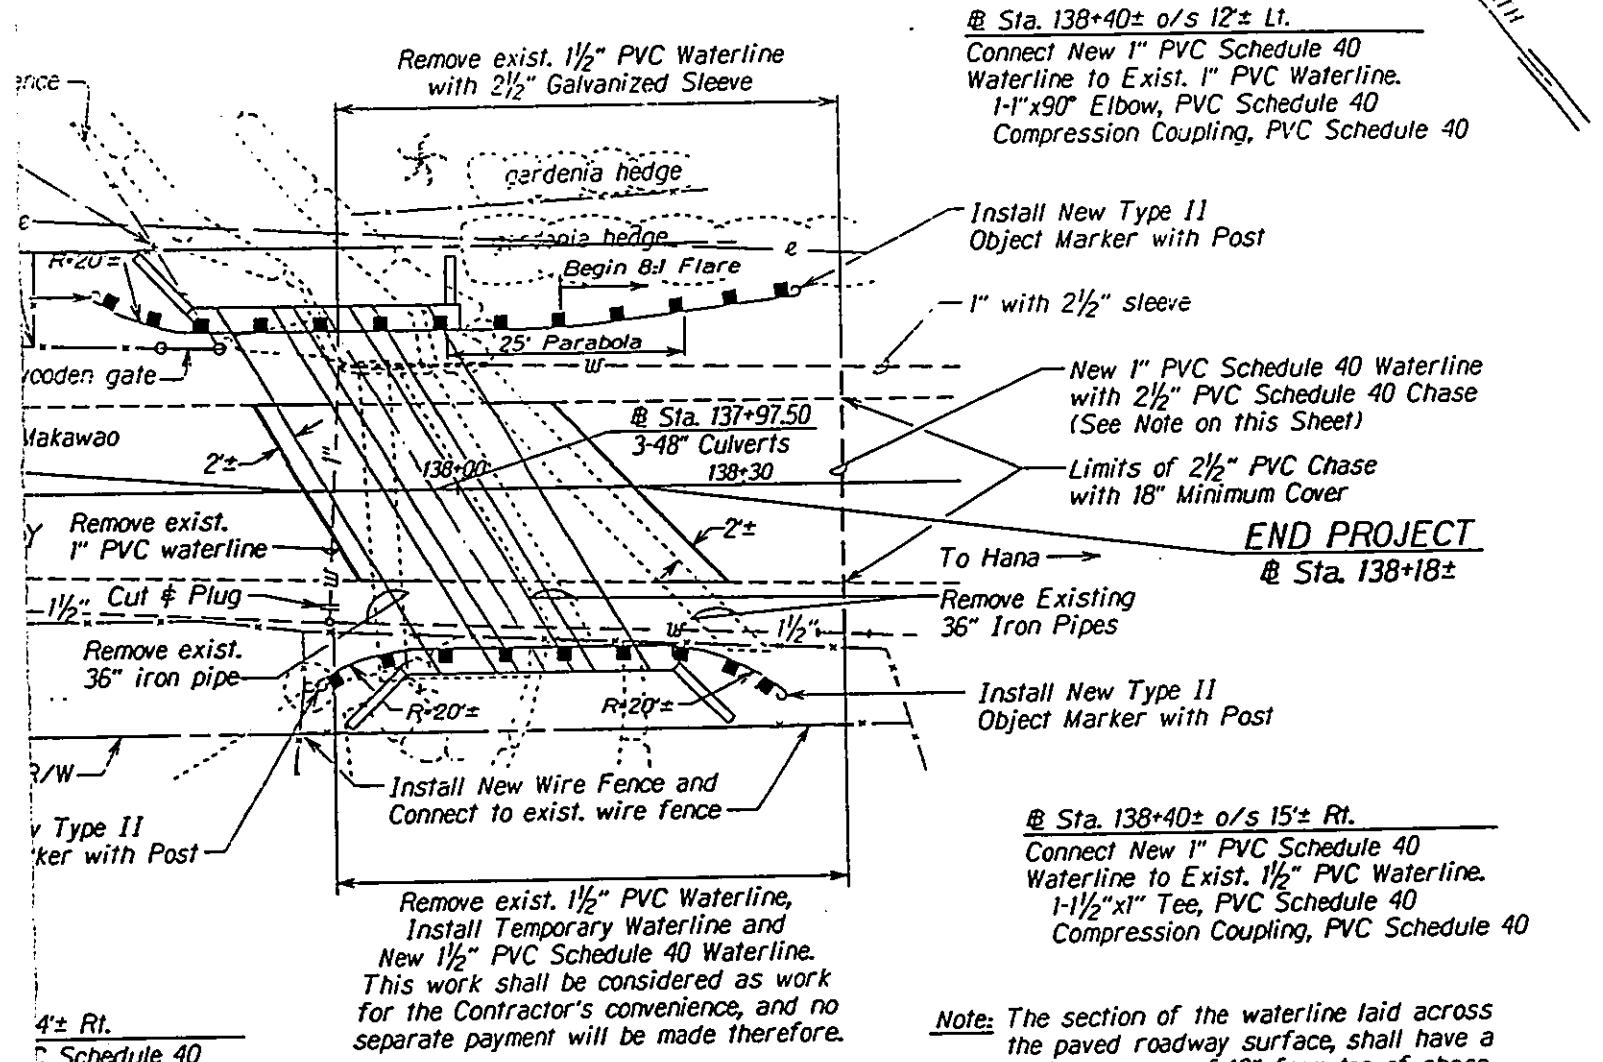 ℄ Sta. 138+40± o/s 12'± Lt.
Connect New 1" PVC Schedule 40
Waterline to Exist. 1" PVC Waterline.
1-1"x90° Elbow, PVC Schedule 40
Compression Coupling, PVC Schedule 40
Remove exist. 1½" PVC Waterline
with 2½" Galvanized Sleeve
gardenia hedge
gardenia hedge
e
e
R=20'±
Begin 8:1 Flare
Install New Type II
Object Marker with Post
1" with 2½" sleeve
25' Parabola
w
wooden gate
New 1" PVC Schedule 40 Waterline
with 2½" PVC Schedule 40 Chase
(See Note on this Sheet)
Makawao
℄ Sta. 137+97.50
3-48" Culverts
2'±
1"
138+00
138+30
Limits of 2½" PVC Chase
with 18" Minimum Cover
Remove exist.
1" PVC waterline
2'±
END PROJECT
℄ Sta. 138+18±
To Hana
w
1½"
Cut & Plug
Remove Existing
36" Iron Pipes
w
1½"
Remove exist.
36" iron pipe
R=20'±
R=20'±
Install New Type II
Object Marker with Post
R/W
Install New Wire Fence and
Connect to exist. wire fence
Type II
with Post
℄ Sta. 138+40± o/s 15'± Rt.
Connect New 1" PVC Schedule 40
Waterline to Exist. 1½" PVC Waterline.
1-1½"x1" Tee, PVC Schedule 40
Compression Coupling, PVC Schedule 40
Remove exist. 1½" PVC Waterline,
Install Temporary Waterline and
New 1½" PVC Schedule 40 Waterline.
This work shall be considered as work
for the Contractor's convenience, and no
separate payment will be made therefore.
4'± Rt.
Schedule 40
Note: The section of the waterline laid across
the paved roadway surface, shall have a